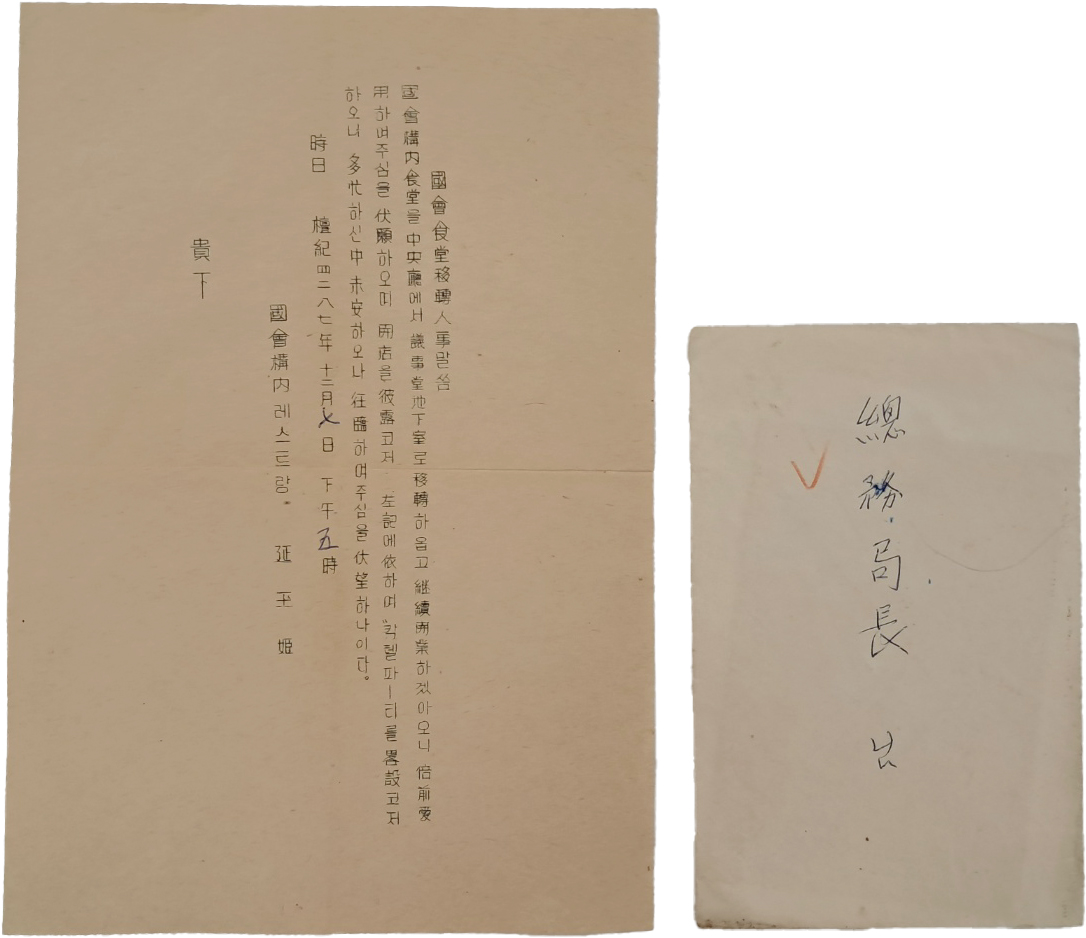 國會食堂移轉人事말씀
國會構內食堂을 中央廳에서 議事堂地下室로移轉하옵고 継續開業하겠아오니 倍前愛
用하여주심을 伏願하오며 開店을 彼露코저 左記에依하여 “칵텔파ㅣ티를 畧設코저
하오니 多忙하신中 未安하오나 枉臨하여주심을 伏望하나이다。
時日 檀紀四二八七年 十二月七日 下午五時
國會構內레스트랑。 延玉姬
貴下
總務局長 님